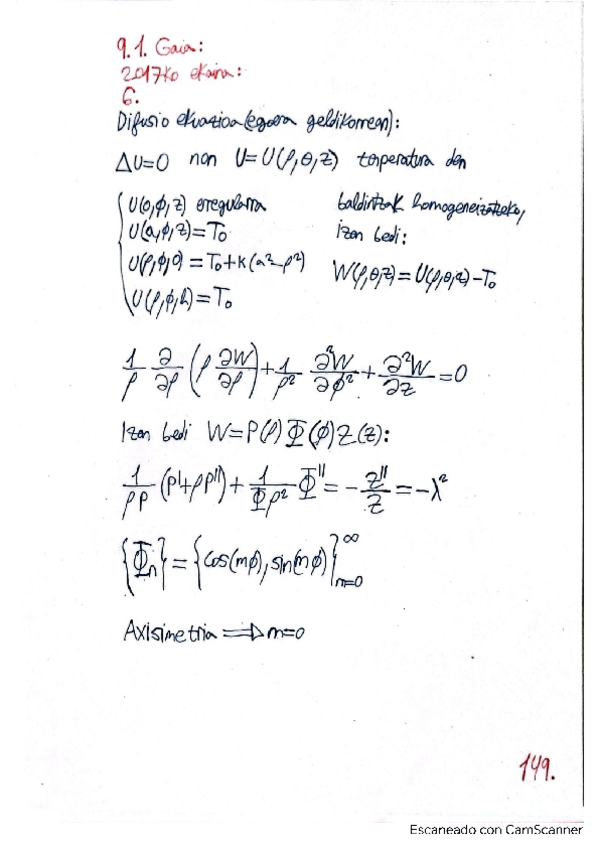 9.1. Gaia:
2017ko ekaina:
6.
Difusio ekuazioa (egoera geldikorrean):
ΔU=0 non U=U(ρ,θ,z) tenperatura den
U(0,ϕ,z) erregularra baldintzak homogeneizatzeko,
U(a,ϕ,z)=T₀ izan bedi:
U(ρ,ϕ,0)=T₀+k(a²-ρ²) W(ρ,θ,z)=U(ρ,θ,z)-T₀
U(ρ,ϕ,h)=T₀
1/ρ ∂/∂ρ (ρ ∂W/∂ρ)+1/ρ² ∂²W/∂ϕ²+∂²W/∂z=0
Izan bedi W=P(ρ)Φ(ϕ)Z(z):
1/ρP (P'+ρP'')+1/Φρ² Φ''=-Z''/Z=-λ²
{Φₙ}={cos(mϕ),sin(mϕ)}^∞_m=0
Axisimetria ⟹ m=0
149.
Escaneado con CamScanner